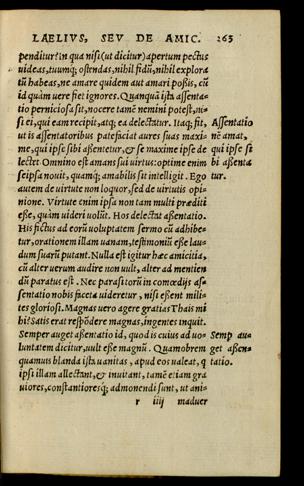 LAELIVS, SEV DE AMIC. 265
penditur? in qua nisi (ut dicitur) apertum pectus
uideas, tuumq; ostendas, nihil fidū, nihil explora
tū habeas, ne amare quidem aut amari poßis, cū
id quàm uere fiat ignores. Quanquā ista assenta-
tio perniciosa sit, nocere tamē nemini potest, ni-
si ei, qui eam recipit, atq; ea delectatur. Ita fit, Assentatio
ut is assentatoribus patefaciat aures suas maxi- nē amat,
me, qui ipse sibi assentetur, & se maxime ipse de qui ipse si
lectet. Omnino est amans sui uirtus: optime enim bi assentá
seipsa nouit, quamq; amabilis sit intelligit. Ego tur.
autem de uirtute non loquor, sed de uirtutis opi-
nione. Virtute enim ipsa non tam multi præditi
esse, quàm uideri uolūt. Hos delectat assentatio.
His fictus ad eorū uoluptatem sermo cū adhibe-
tur, orationem illam uanam, testimoniū esse lau-
dum suarū putant. Nulla est igitur hæc amicitia,
cū alter uerum audire non uult, alter ad mentien
dū paratus est. Nec parasitorū in comœdijs as-
sentatio nobis faceta uideretur, nisi essent mili-
tes gloriosi. Magnas uero agere gratias Thais mi
hi? Satis erat respōdere magnas, ingentes inquit.
Semper auget assentatio id, quod is cuius ad uo- Semp au-
luntatem dicitur, uult esse magnū. Quamobrem get assen-
quamuis blanda ista uanitas, apud eos ualeat, q tatio.
ipsi illam allectant, & inuitant, tamē etiam gra
uiores, constantioresq; admonendi sunt, ut ani-
r iiij maduer